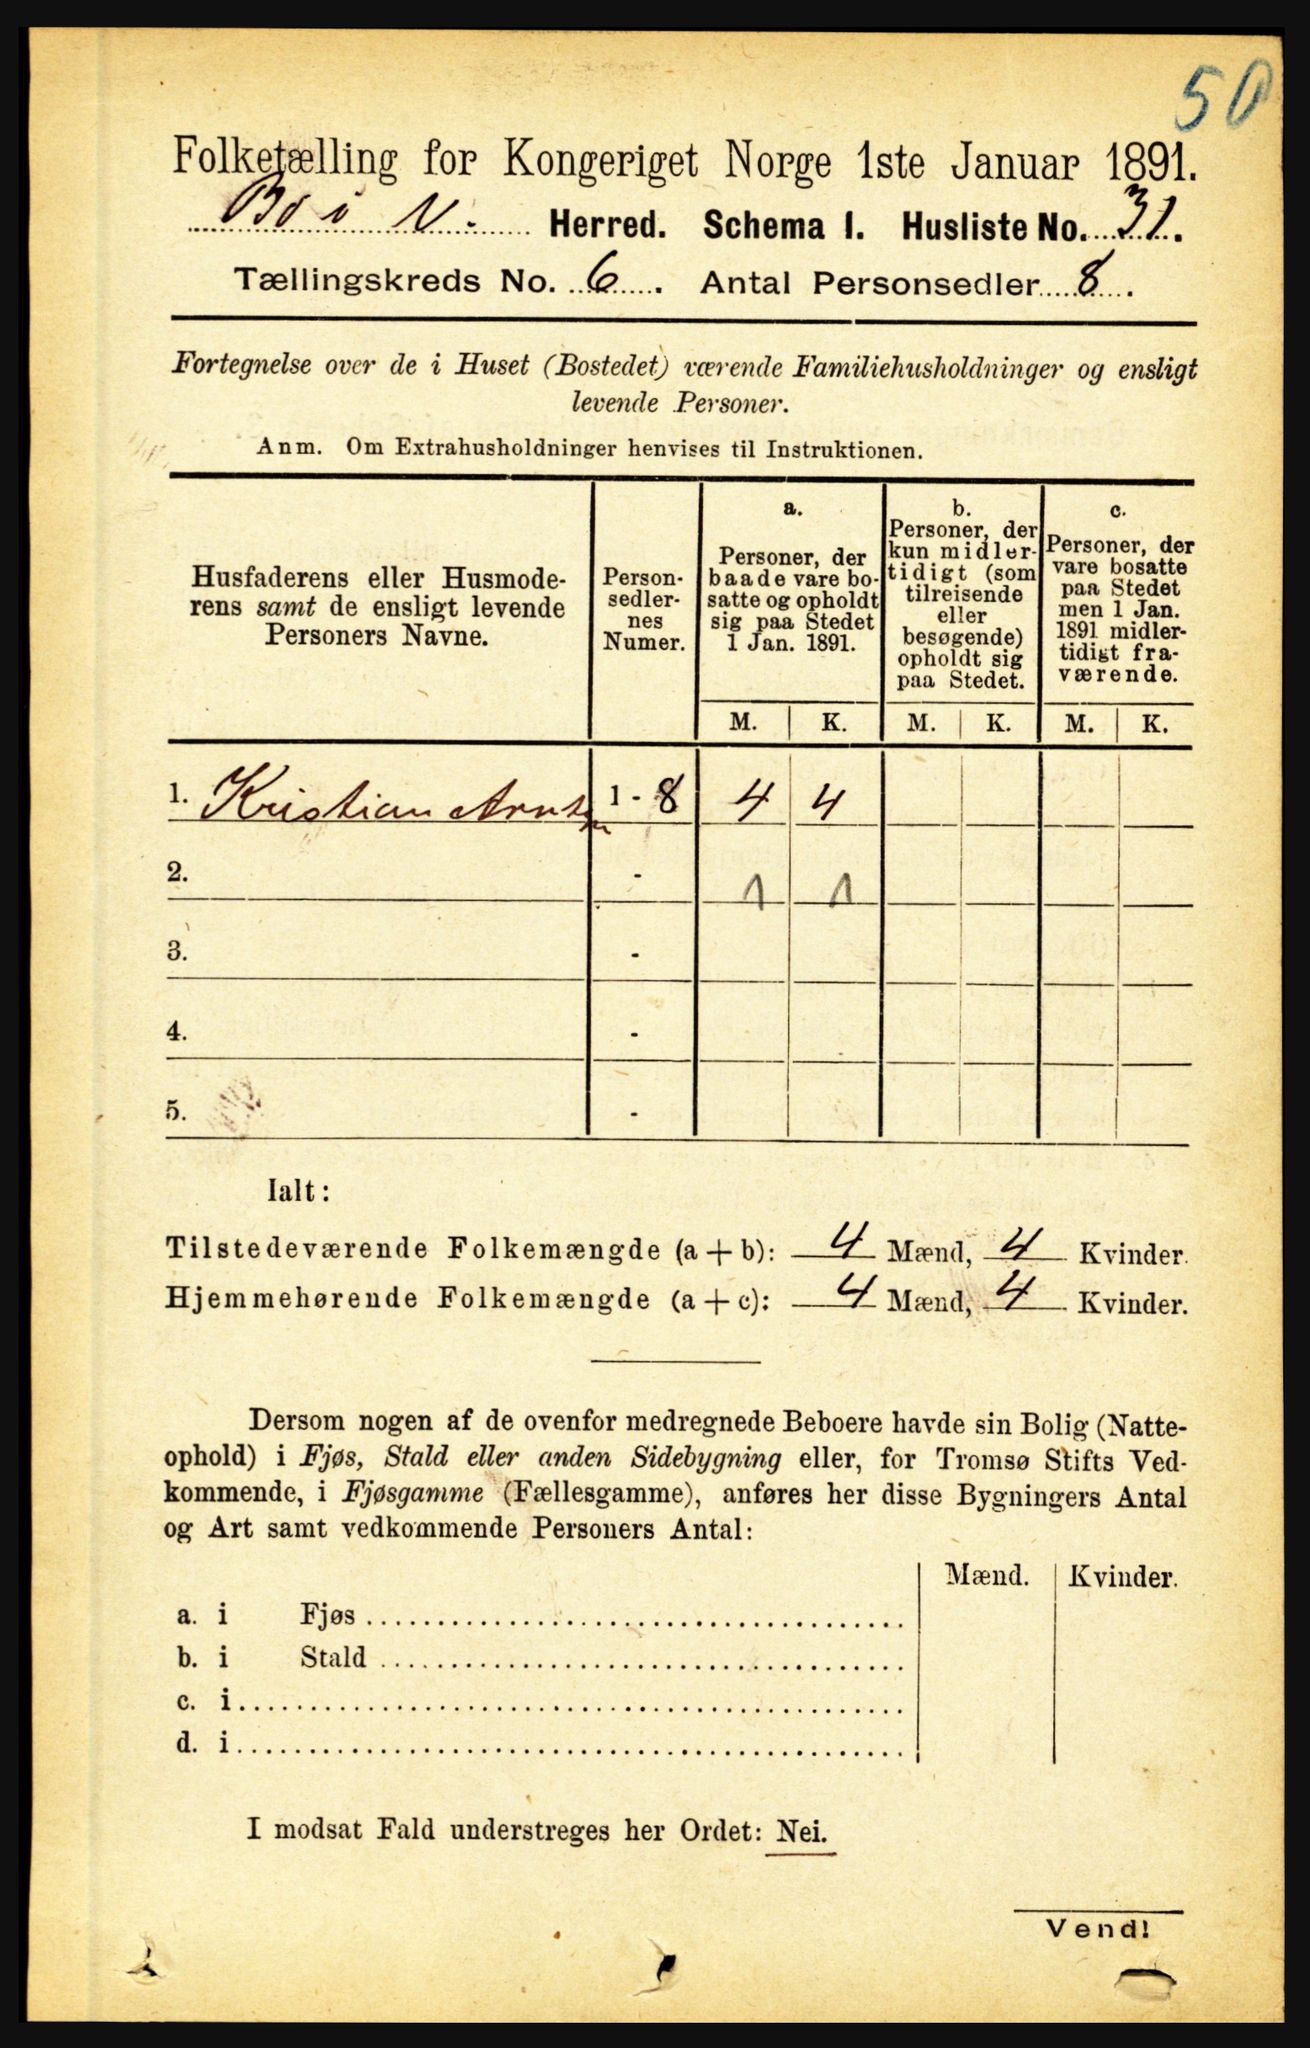 50
Folketælling for Kongeriget Norge 1ste Januar 1891.
Bø i V. Herred. Schema I. Husliste No. 31.
Tællingskreds No. 6. Antal Personsedler 8.
Fortegnelse over de i Huset (Bostedet) værende Familiehusholdninger og ensligt
levende Personer.
Anm. Om Extrahusholdninger henvises til Instruktionen.
Husfaderens eller Husmode-
rens samt de ensligt levende
Personers Navne.
Person-
sedler-
nes
Numer.
a.
Personer, der
baade vare bo-
satte og opholdt
sig paa Stedet
1 Jan. 1891.
b.
Personer, der
kun midler-
tidigt (som
tilreisende
eller
besøgende)
opholdt sig
paa Stedet.
c.
Personer, der
vare bosatte
paa Stedet
men 1 Jan.
1891 midler-
tidigt fra-
værende.
M. K. M. K. M. K.
1. Kristian Arntsen 1 - 8 4 4
2. - 1 1
3. -
4. -
5. -
Ialt:
Tilstedeværende Folkemængde (a + b): 4 Mænd, 4 Kvinder.
Hjemmehørende Folkemængde (a + c): 4 Mænd, 4 Kvinder.
Dersom nogen af de ovenfor medregnede Beboere havde sin Bolig (Natte-
ophold) i Fjøs, Stald eller anden Sidebygning eller, for Tromsø Stifts Ved-
kommende, i Fjøsgamme (Fællesgamme), anføres her disse Bygningers Antal
og Art samt vedkommende Personers Antal:
Mænd. Kvinder.
a. i Fjøs
b. i Stald
c. i
d. i
I modsat Fald understreges her Ordet: Nei.
Vend!